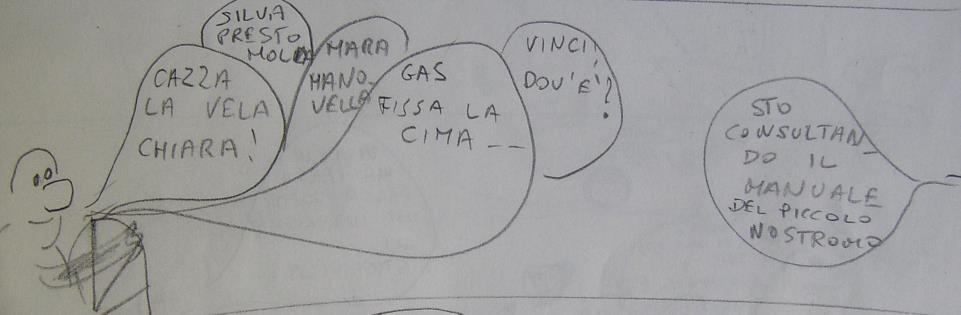 SILVIA
PRESTO
MOLLA
CAZZA
LA VELA
CHIARA!
MARA
MANO-
VELLA
GAS
FISSA LA
CIMA __
VINCI
DOV'E'?
STO
CONSULTAN_
DO IL
MANUALE
DEL PICCOLO
NOSTROMO